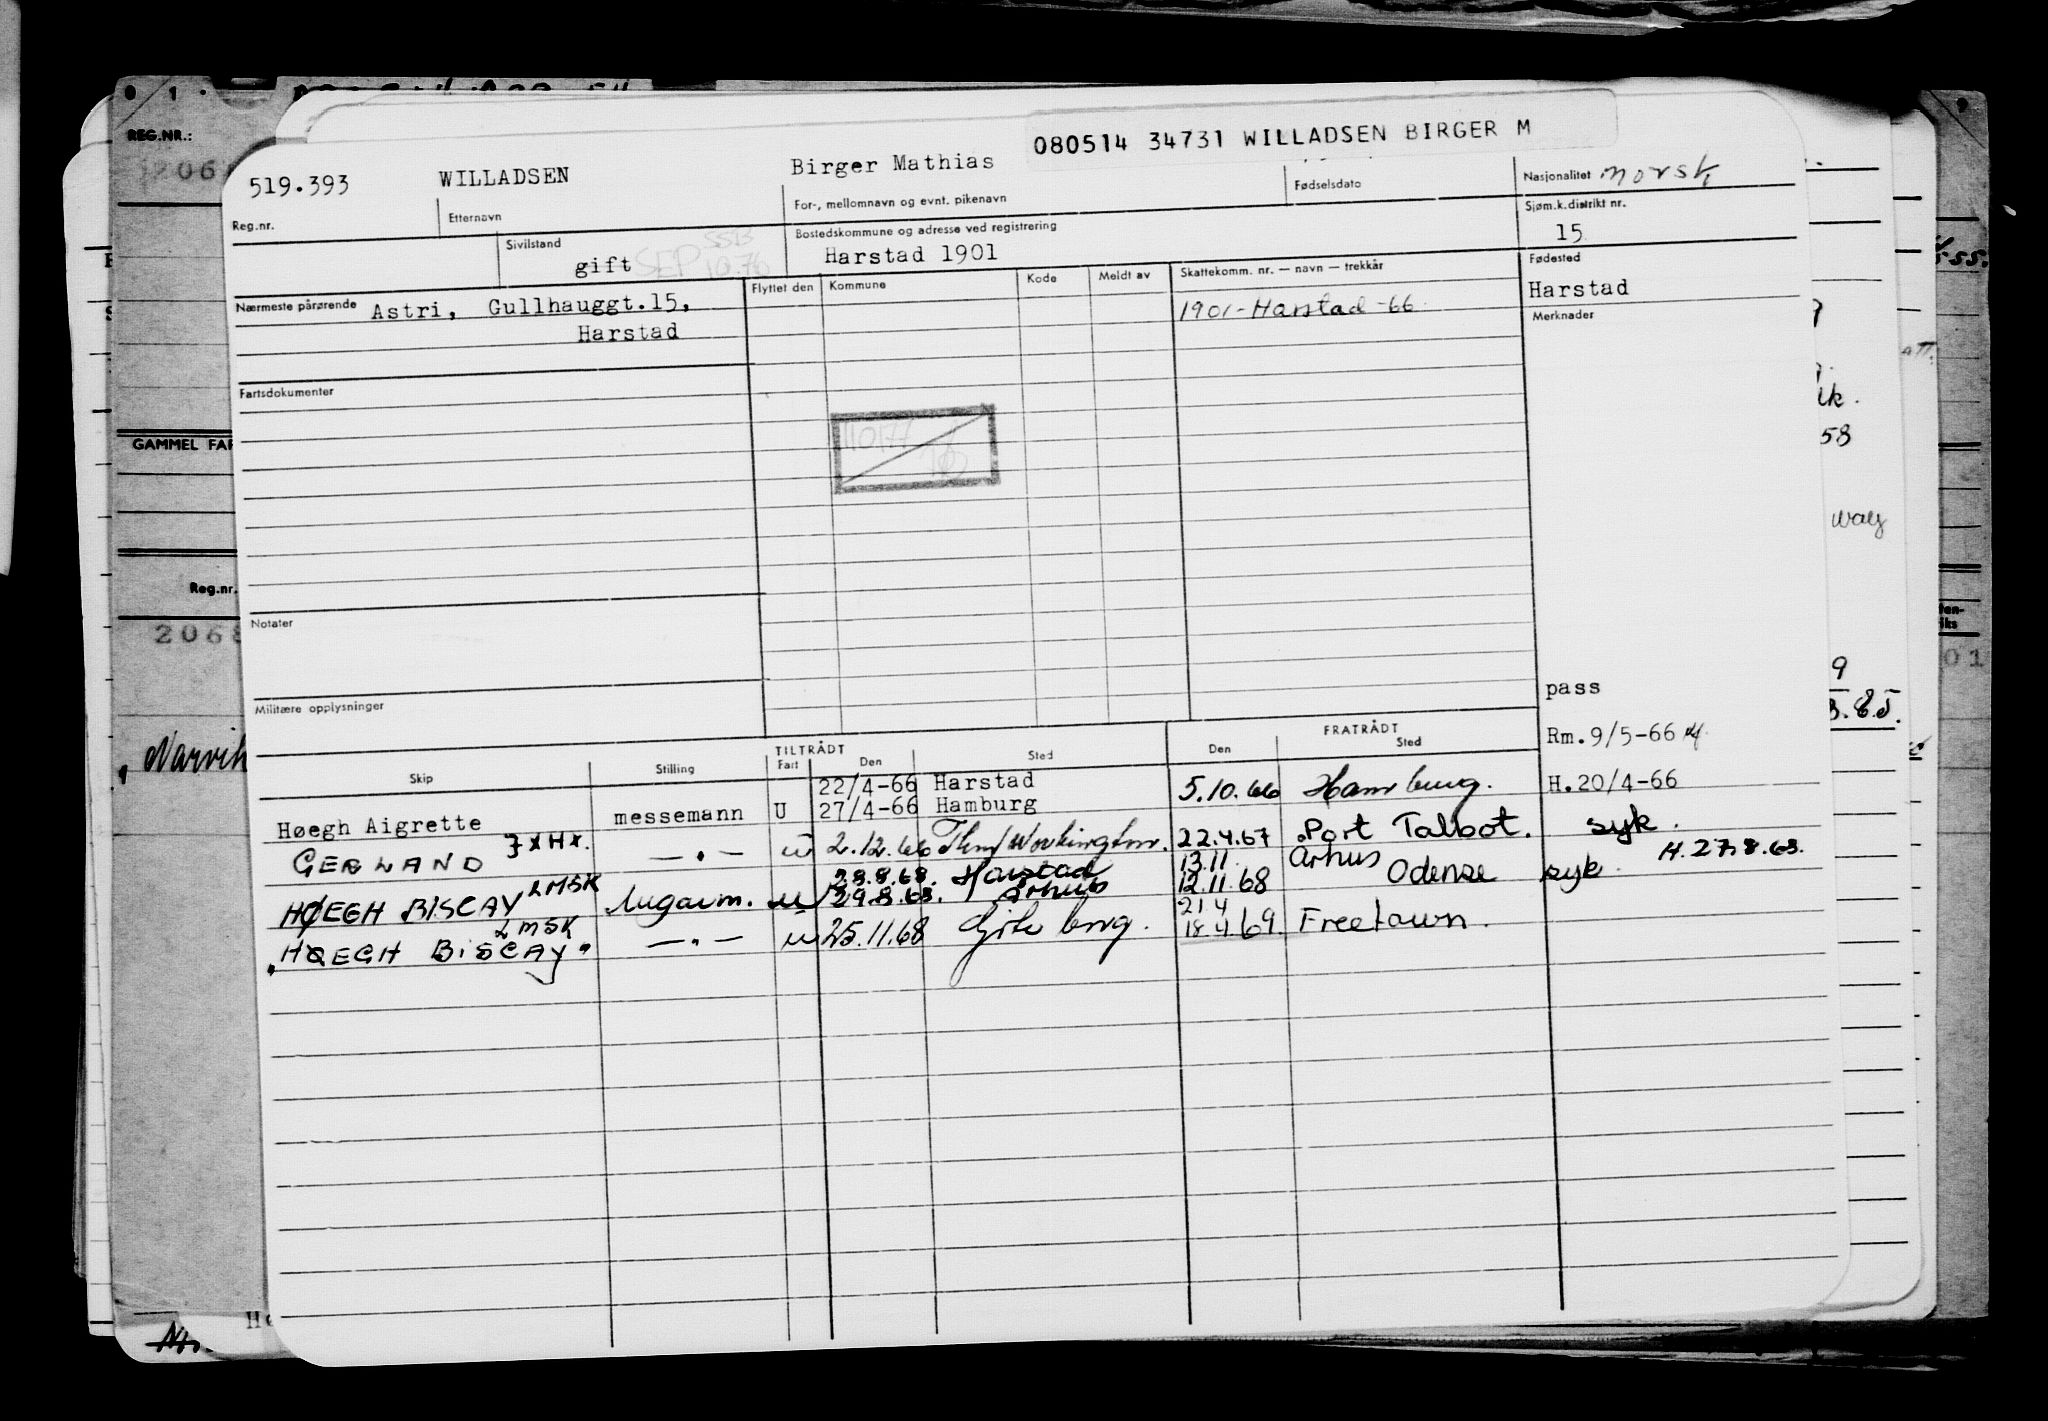 REG.NR.:
080514 34731 WILLADSEN BIRGER M
519.393 WILLADSEN Birger Mathias Nasjonalitet norsk
Reg.nr. Etternavn For-, mellomnavn og evnt. pikenavn Fødselsdato Sjøm.k.distrikt nr.
Sivilstand Bostedskommune og adresse ved registrering 15
gift Harstad 1901 Fødested
Nærmeste pårørende Astri, Gullhauggt.15, Flyttet den Kommune Kode Meldt av Skattekomm. nr. — navn — trekkår Harstad
Harstad 1901-Harstad-66 Merknader
Fartsdokumenter
58
GAMMEL FAR
way
Reg.nr.
Notater
pass
Militære opplysninger
Narvik
TILTRÅDT FRATRÅDT Rm.9/5-66
Skip Stilling Fart Den Sted Den Sted
22/4-66 Harstad
Høegh Aigrette messemann U 27/4-66 Hamburg 5.10.66 Hamburg. H.20/4-66
GERLAND — " — u 2.12.66 22.4.67 Port Talbot. syk.
28.8.68. Harstad 13.11. Århus H.27.8.68.
HØEGH BISCAY LMSK lugarm. u 29.8.68. Århus 12.11.68 Odense syk.
21.4
"HØEGH BISCAY" LMSK — " — u 25.11.68 Göteborg. 18.4.69. Freetown.